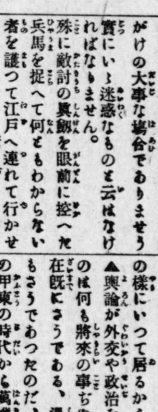 がけの大事な場合でありませう
實にいゝ迷惑なものと云はなけ
ればなりません。
殊に敵討の眞劔を眼前に控へた
兵馬を捉へて何ともわからない
者を護つて江戸へ連れて行かせ
の樣にいつて居るから
▲輿論が外交や政治な
のは何も將來の事ぢ
在旣にさうである、
もさうであつたのだ、
の甲東の時代から萬